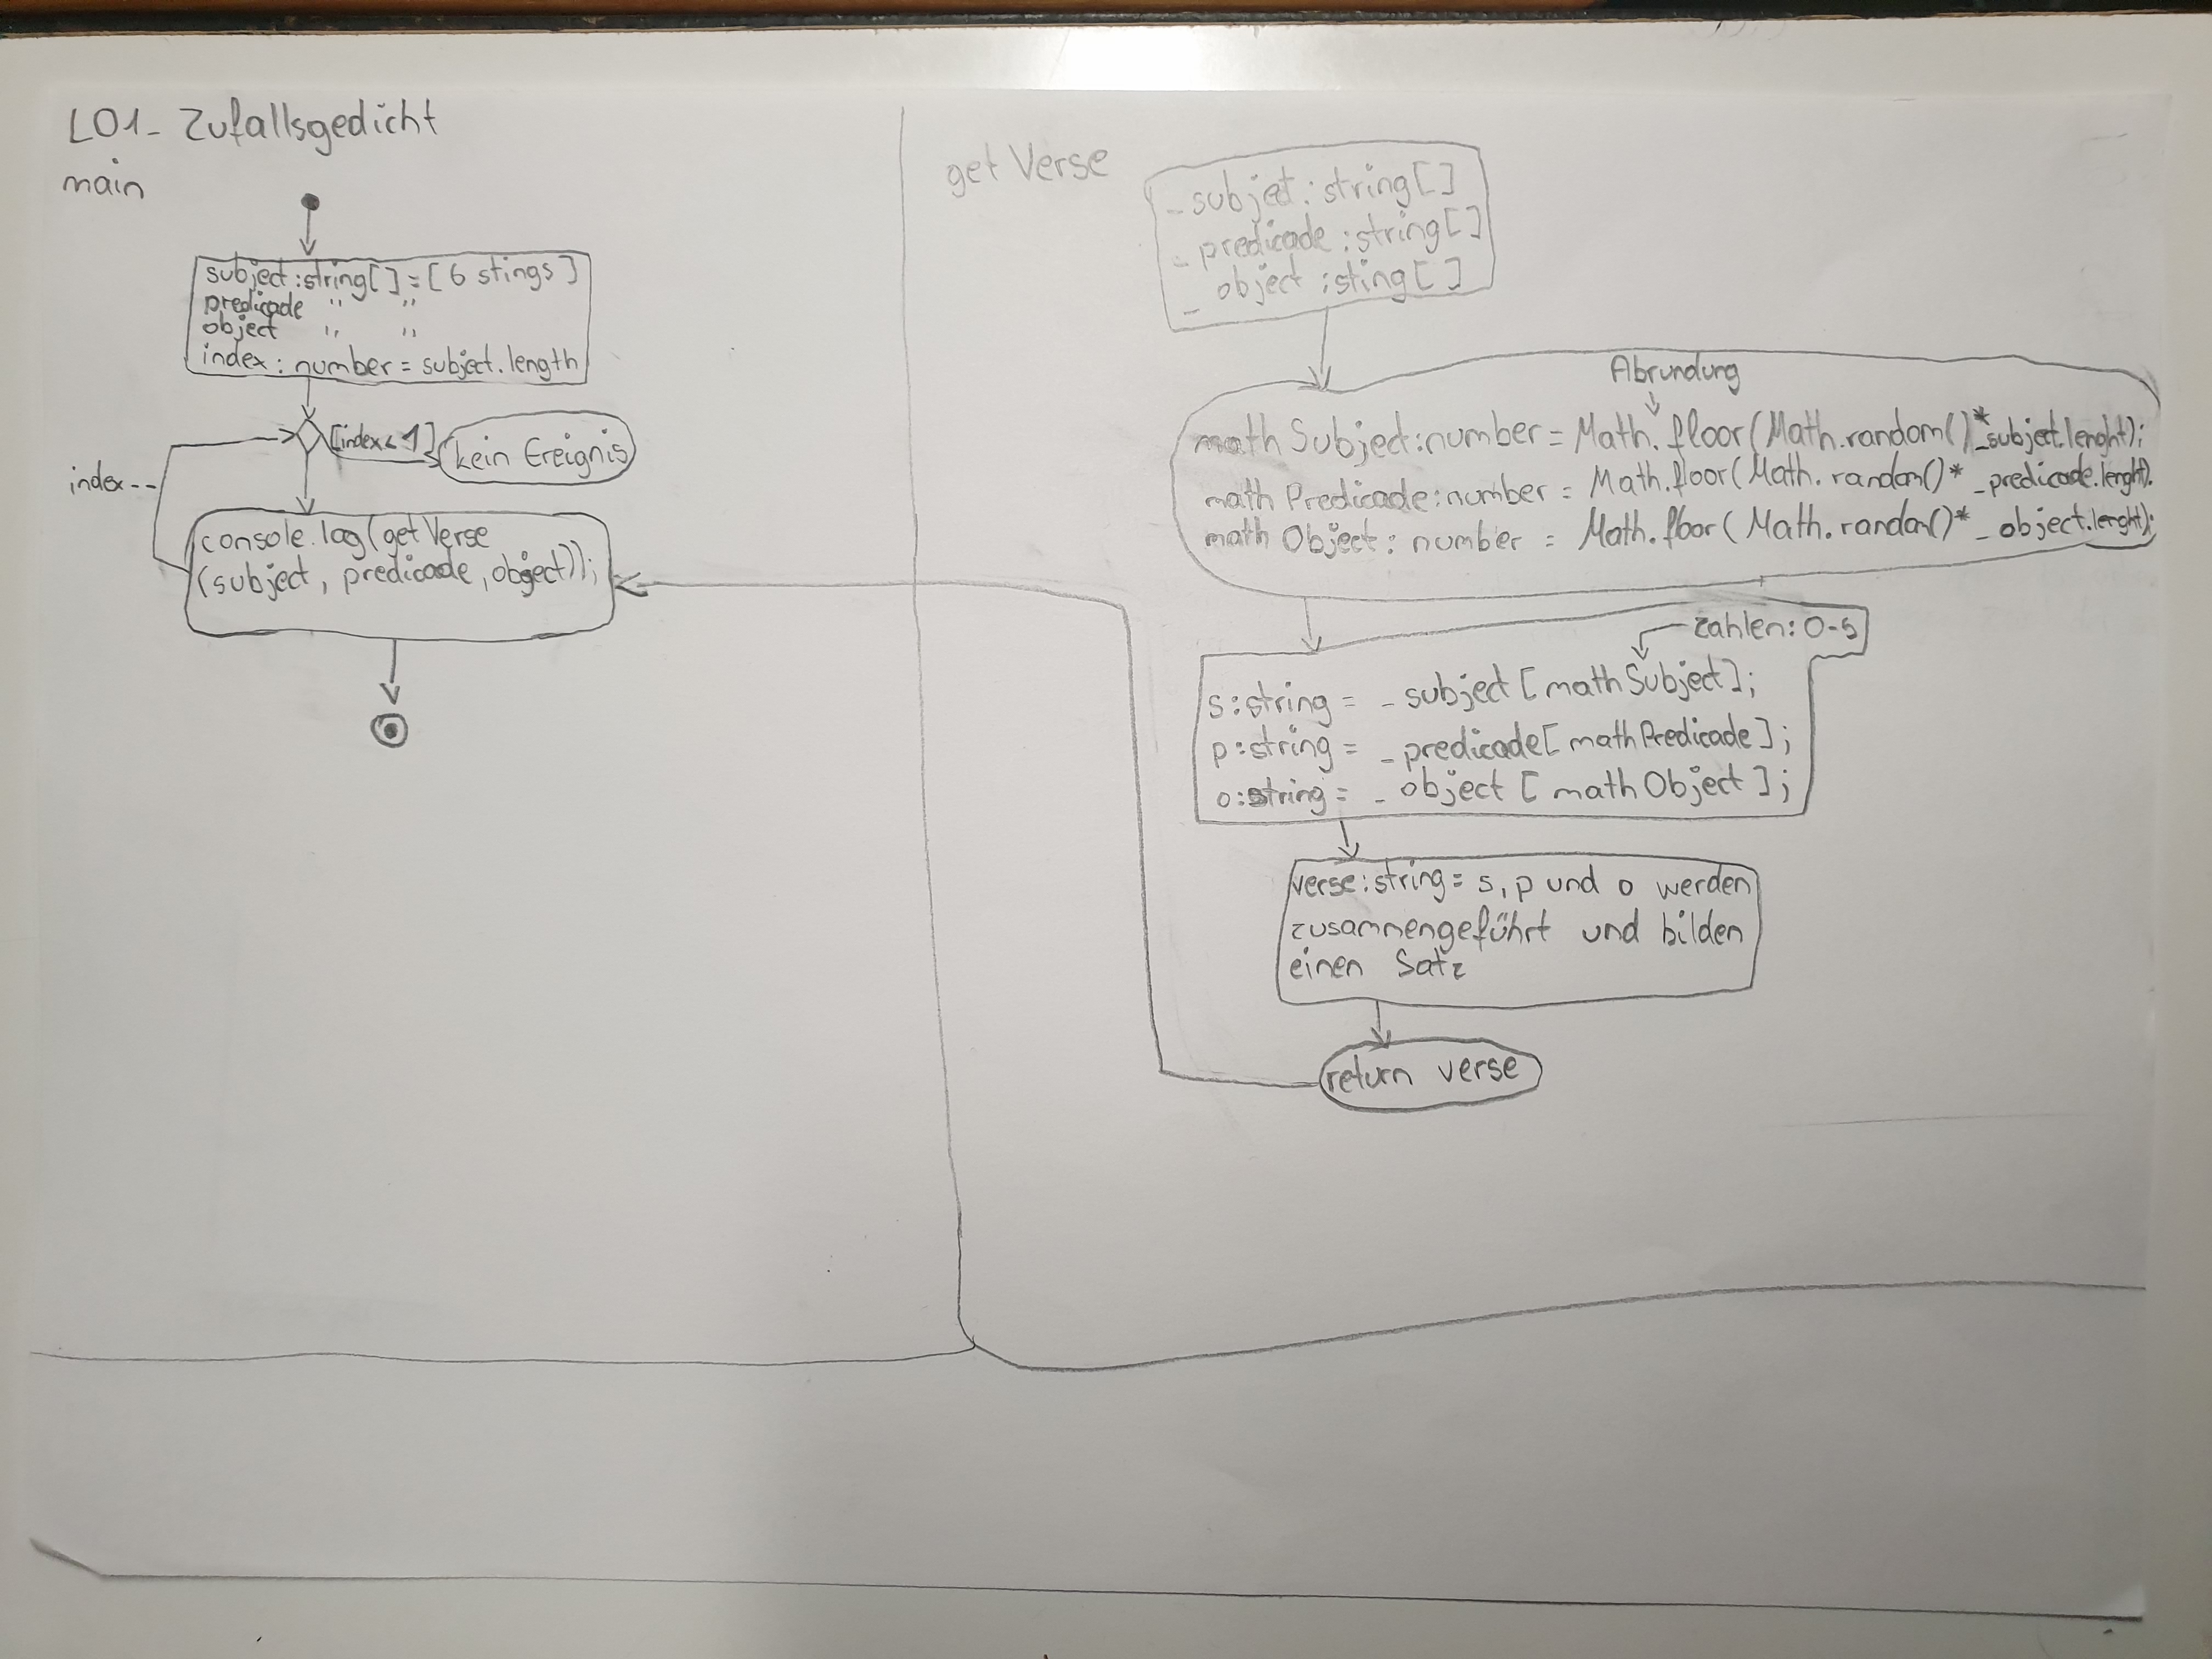 L01_Zufallsgedicht
main
subject:string[]=[6 stings]
predicade " "
object " "
index: number = subject.length
[index<1]
kein Ereignis
index--
console.log(getVerse
(subject, predicade, object));
get Verse
_subject: string[]
_predicade: string[]
_object: sting[]
Abrundung
mathSubject:number = Math.floor(Math.random()*_subject.lenght);
mathPredicade:number = Math.floor(Math.random()*_predicade.lenght);
mathObject: number = Math.floor(Math.random()*_object.lenght);
Zahlen: 0-5
s:string = _subject[mathSubject];
p:string = _predicade[mathPredicade];
o:string = _object[mathObject];
Verse:string = s,p und o werden
zusammengeführt und bilden
einen Satz
return verse